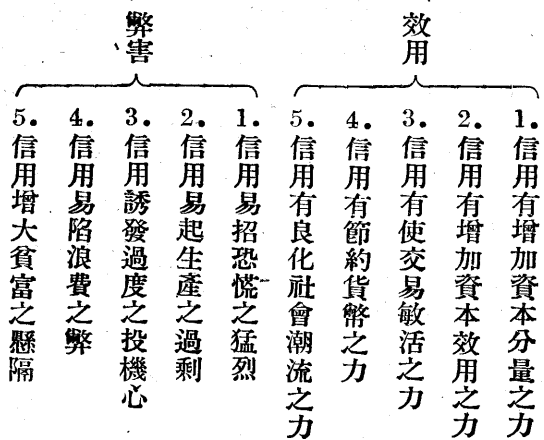 效用
1.信用有增加資本分量之力
2.信用有增加資本效用之力
3.信用有使交易敏活之力
4.信用有節約貨幣之力
5.信用有良化社會潮流之力
弊害
1.信用易招恐慌之猛烈
2.信用易起生產之過剩
3.信用誘發過度之投機心
4.信用易陷浪費之弊
5.信用增大貧富之懸隔